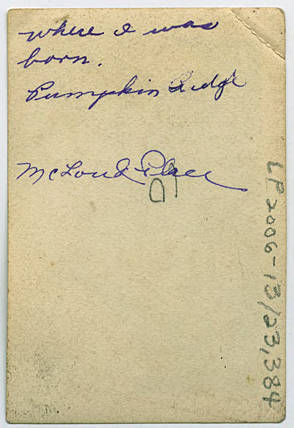 where I was
born.
Pumpkin Ridge
McLoud Place
LP2006-13/23,384